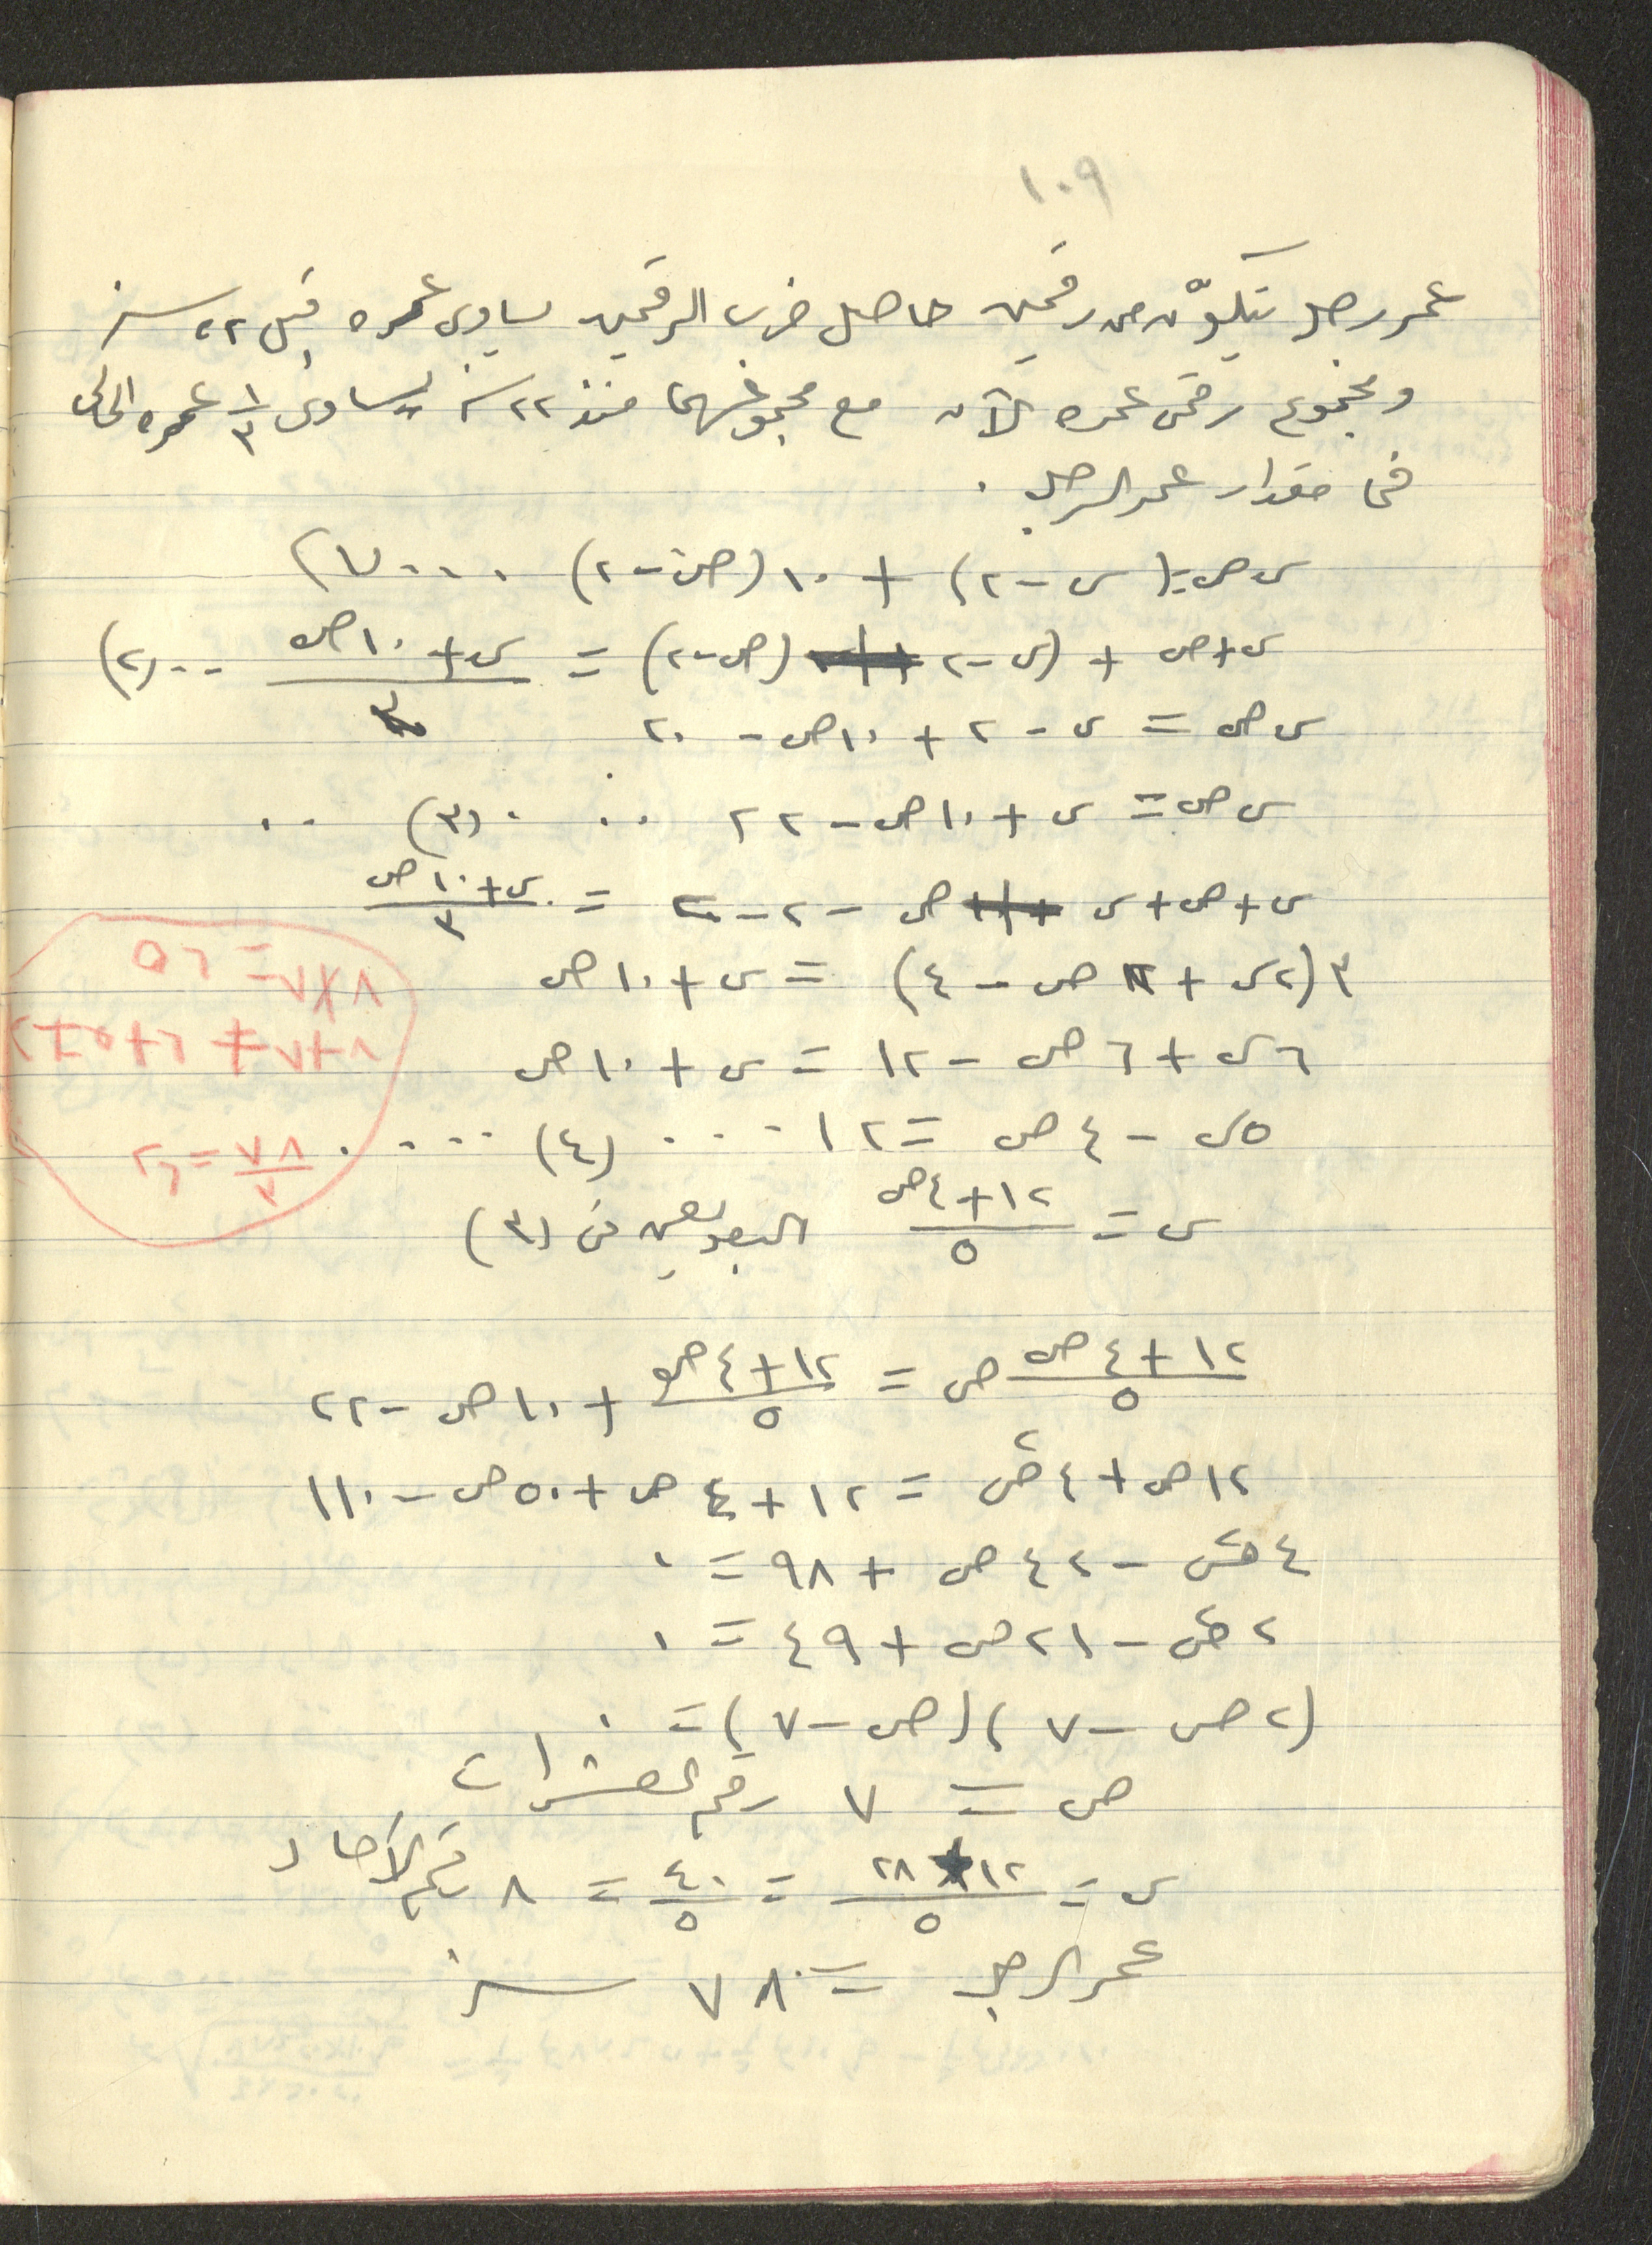 ١٠٩
عمر رجل يتكون من رقمين حاصل ضرب الرقمين يساوى عمره قبل ٢٢ سنة
ومجموع رقمى عمره الآن مع مجموعهما منذ ٢٢ سنة يساوى ١/٣ عمره الحالى
فما مقدار عمر الرجل .
س ص = (س - ٢) + ١٠ (ص - ٢) ... (١)
س + ص + (س - ٢ (ص - ٢) = (س + ١٠ ص)/٣ .. (٢)
س ص = س - ٢ + ١٠ ص - ٢٠
س ص = س + ١٠ ص - ٢٢ .. . (٣) ..
س + ص + س ص - ٢ - ٢ = (س + ١٠ ص)/٣
٣ (٢ س + ٢ ص - ٤) = س + ١٠ ص
٦ س + ٦ ص - ١٢ = س + ١٠ ص
٥ س - ٤ ص = ١٢ ... (٤) ....
س = (١٢ + ٤ ص)/٥ بالتعويض فى (٣)
(١٢ + ٤ ص)/٥ ص = (١٢ + ٤ ص)/٥ + ١٠ ص - ٢٢
١٢ ص + ٤ ص٢ = ١٢ + ٤ ص + ٥٠ ص - ١١٠
٤ ص٢ - ٤٢ ص + ٩٨ = ٠
٢ ص٢ - ٢١ ص + ٤٩ = ٠
(٢ ص - ٧) (ص - ٧) = ٠
ص = ٧ رقم العشرات
س = (١٢ + ٢٨)/٥ = ٤٠/٥ = ٨ رقم الآحاد
عمر الرجل = ٧٨ سنة